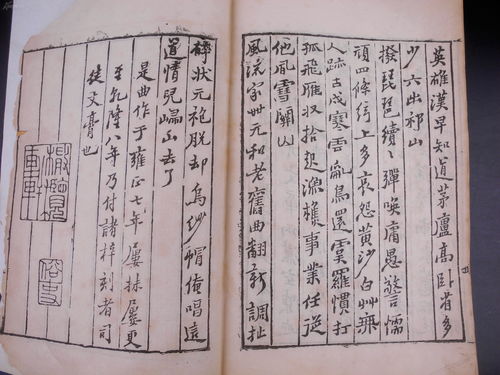 英雄漢早知道茅廬高卧省多
少六出祁山
撥琵琶續〻彈喚庸愚警懦
頑四條絃上多哀怨黃沙白艸無
人跡古戍寒雲亂鳥還虞羅慣打
孤飛雁收拾起漁樵事業任從
他風雪關山
風流家世元和老舊曲翻新調扯
碎狀元袍脫却烏紗帽俺唱這
道情兒歸山去了
是曲作于雍正七年屢抹屢更
至乾隆八年乃付諸梓刻者司
徒文膏也
橄欖軒
俗吏